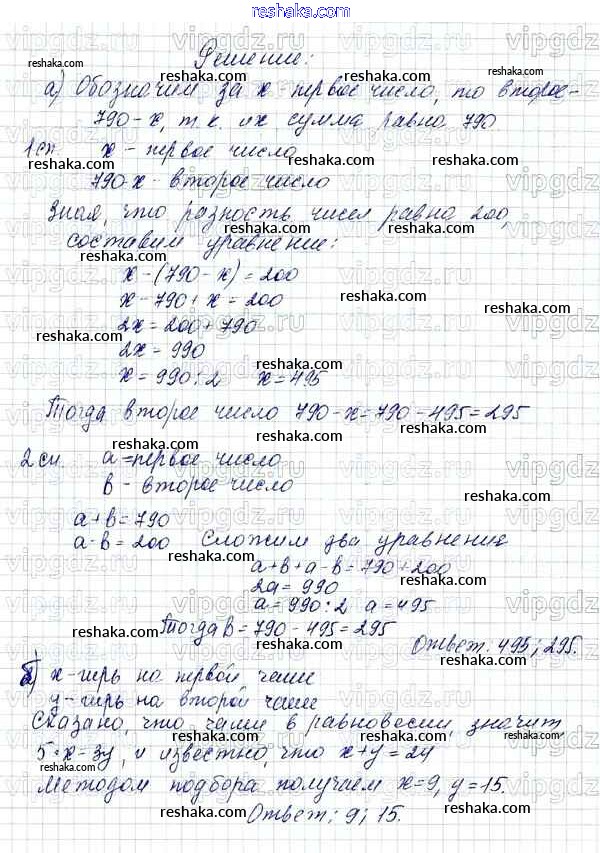 reshaka.com
Решение:
а) Обозначим за х - первое число, то второе -
790-х, т.к. их сумма равна 790
1сп. х - первое число
790-х - второе число
Зная, что разность чисел равна 200,
составим уравнение:
х-(790-х)=200
х-790+х=200
2х=200+790
2х=990
х=990:2 х=495
Тогда второе число 790-х=790-495=295
2сп. а=первое число
в - второе число
а+в=790
а-в=200 Сложим два уравнение
а+в+а-в=790+200
2а=990
а=990:2 а=495
Тогда в=790-495=295
Ответ: 495; 295.
б) х-гирь на первой чаше
у-гирь на второй чаше
Сказано, что чаши в равновесии, значит,
5·х=3у, и известно, что х+у=24
Методом подбора получаем х=9, у=15.
Ответ: 9; 15.